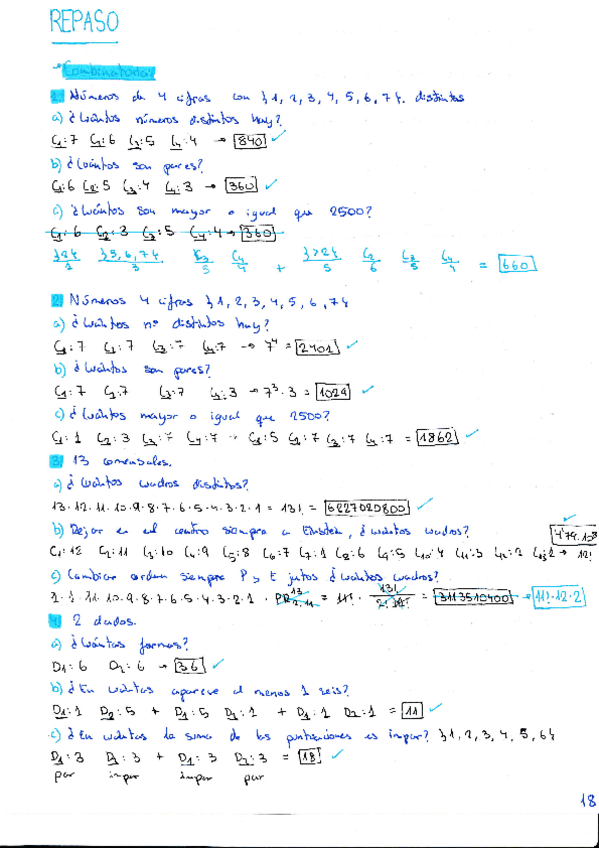 REPASO
→ Combinatoria
1. Números de 4 cifras con {1, 2, 3, 4, 5, 6, 7}. distintas
a) ¿Cuántos números distintos hay?
C1: 7 C2: 6 C3: 5 C4: 4 → 840 ✓
b) ¿Cuántos son pares?
C1: 6 C2: 5 C3: 4 C4: 3 → 360 ✓
c) ¿Cuántos son mayor o igual que 2500?
C1: 6 C2: 3 C3: 5 C4: 4 → 360
{2} {5, 6, 7} C3 C4 {>2} C2 C3 C4
3 5 4 + 5 6 5 4 = 660
2. Números 4 cifras {1, 2, 3, 4, 5, 6, 7}
a) ¿Cuántos nº distintos hay?
C1: 7 C2: 7 C3: 7 C4: 7 → 7⁴ = 2401 ✓
b) ¿Cuántos son pares?
C1: 7 C2: 7 C3: 7 C4: 3 → 7³ · 3 = 1029 ✓
c) ¿Cuántos mayor o igual que 2500?
C1: 1 C2: 3 C3: 7 C4: 7 + C1: 5 C2: 7 C3: 7 C4: 7 = 1862 ✓
3. 13 comensales.
a) ¿Cuántos cuadros distintos?
13 · 12 · 11 · 10 · 9 · 8 · 7 · 6 · 5 · 4 · 3 · 2 · 1 = 13! = 6227020800 ✓
b) Dejar en el centro siempre a Einstein, ¿cuántos cuadros? 4'79·10⁸ ✓
C1: 12 C2: 11 C3: 10 C4: 9 C5: 8 C6: 7 C7: 1 C8: 6 C9: 5 C10: 4 C11: 3 C12: 2 → 12!
c) Cambiar orden siempre P y E juntos ¿cuántos cuadros?
11 · 10 · 9 · 8 · 7 · 6 · 5 · 4 · 3 · 2 · 1 · = 11! · = 3113510400 → 11! · 12 · 2
4. 2 dados.
a) ¿Cuántas formas?
D1: 6 D2: 6 → 36 ✓
b) ¿En cuántas aparece al menos 1 seis?
D1: 1 D2: 5 + D1: 5 D2: 1 + D1: 1 D2: 1 = 11 ✓
c) ¿En cuántas la suma de las puntuaciones es impar? {1, 2, 3, 4, 5, 6}
D1: 3 D2: 3 + D1: 3 D2: 3 = 18 ✓
par impar impar par
18